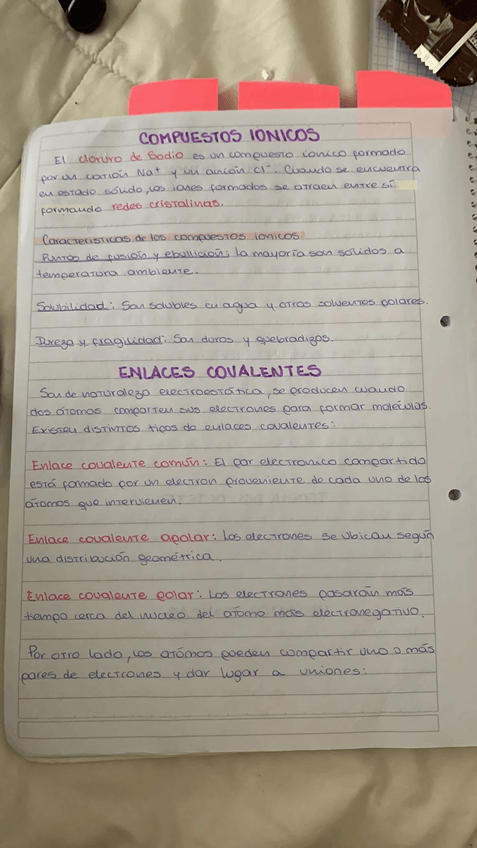 COMPUESTOS IONICOS
El cloruro de Sodio es un compuesto ionico formado
por un catión Na+ y un anión Cl-. Cuando se encuentra
en estado sólido, los iones formados se atraen entre sí
formando redes cristalinas.
Características de los compuestos ionicos:
Puntos de fusión y ebullición: la mayoría son sólidos a
temperatura ambiente.
Solubilidad: Son solubles en agua y otros solventes polares.
Dureza y fragilidad: Son duros y quebradizos.
ENLACES COVALENTES
Son de naturaleza electroestática, se producen cuando
dos átomos comparten sus electrones para formar moléculas.
Existen distintos tipos de enlaces covalentes:
Enlace covalente común: El par electronico compartido
está formado por un electron proveniente de cada uno de los
átomos que intervienen.
Enlace covalente apolar: Los electrones se ubican según
una distribución geométrica.
Enlace covalente polar: Los electrones pasarán más
tiempo cerca del nucleo del átomo más electronegativo.
Por otro lado, los átomos pueden compartir uno o más
pares de electrones y dar lugar a uniones: